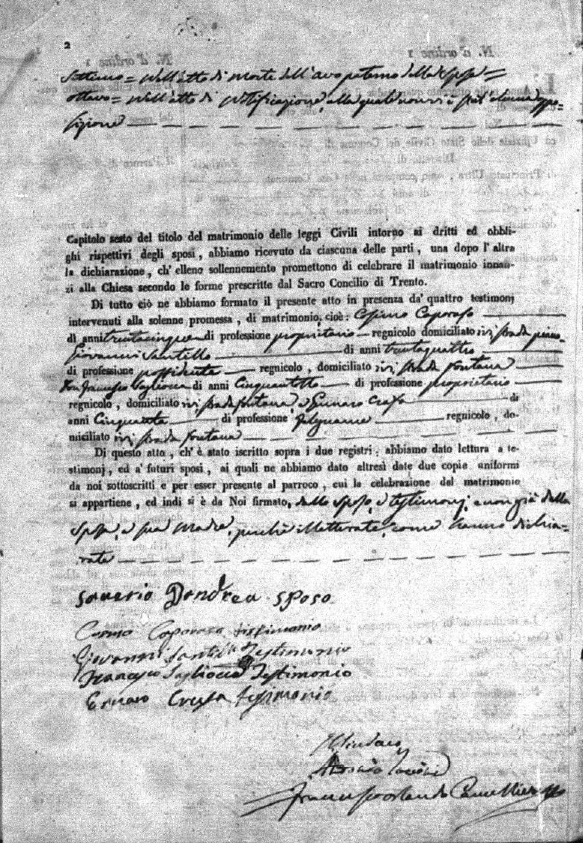 2
Settimo = nell'atto di morte dell'avo paterno della sposa =
ottavo = nell'atto di notificazione, alla quale non vi è stata alcuna oppo-
sizione
Capitolo sesto del titolo del matrimonio delle leggi Civili intorno ai dritti ed obbli-
ghi rispettivi degli sposi, abbiamo ricevuto da ciascuna delle parti, una dopo l' altra
la dichiarazione, ch' elleno sollennemento promettono di celebrare il matrimonio innan-
zi alla Chiesa secondo le forme prescritte dal Sacro Concilio di Trento.
Di tutto ciò ne abbiamo formato il presente atto in presenza da' quattro testimonj
intervenuti alla solenne promessa, di matrimonio, cioè: Cosimo Caporaso
di anni trentacinque di professione proprietario regnicolo domiciliato ivi strada
Giovanni Santillo di anni trentaquattro
di professione possidente regnicolo, domiciliato ivi strada fontana
di anni Cinquantotto di professione proprietario
regnicolo, domiciliato ivi strada fontana, e Gennaro di
anni Cinquanta di professione falegname regnicolo, do-
miciliato ivi strada fontana
Di questo atto, ch' è stato iscritto sopra i due registri, abbiamo dato lettura a te-
stimonj, ed a' futuri sposi, ai quali ne abbiamo dato altresì date due copie uniformi
da noi sottoscritti e per esser presente al parroco, cui la celebrazione dal matrimonio
si appartiene, ed indi si è da Noi firmato, dallo sposo, e testimonj, e non già dalla
sposa, e sua madre, perchè illetterate, come hanno dichia-
rato
saverio Dandrea sposo
Caporaso testimonio
Giovanni Santillo Testimonio
Francesco Testimonio
testimonio
Il Sindaco
Cancelliere